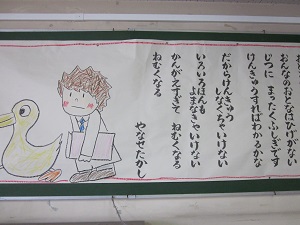 おんなのおとなはひげがない
じつに まったくふしぎです
けんきゅうすればわかるかな
だからけんきゅう
しなくちゃいけない
いろいろほんも
よまなきゃいけない
かんがえすぎて ねむくなる
ねむくなる
やなせたかし